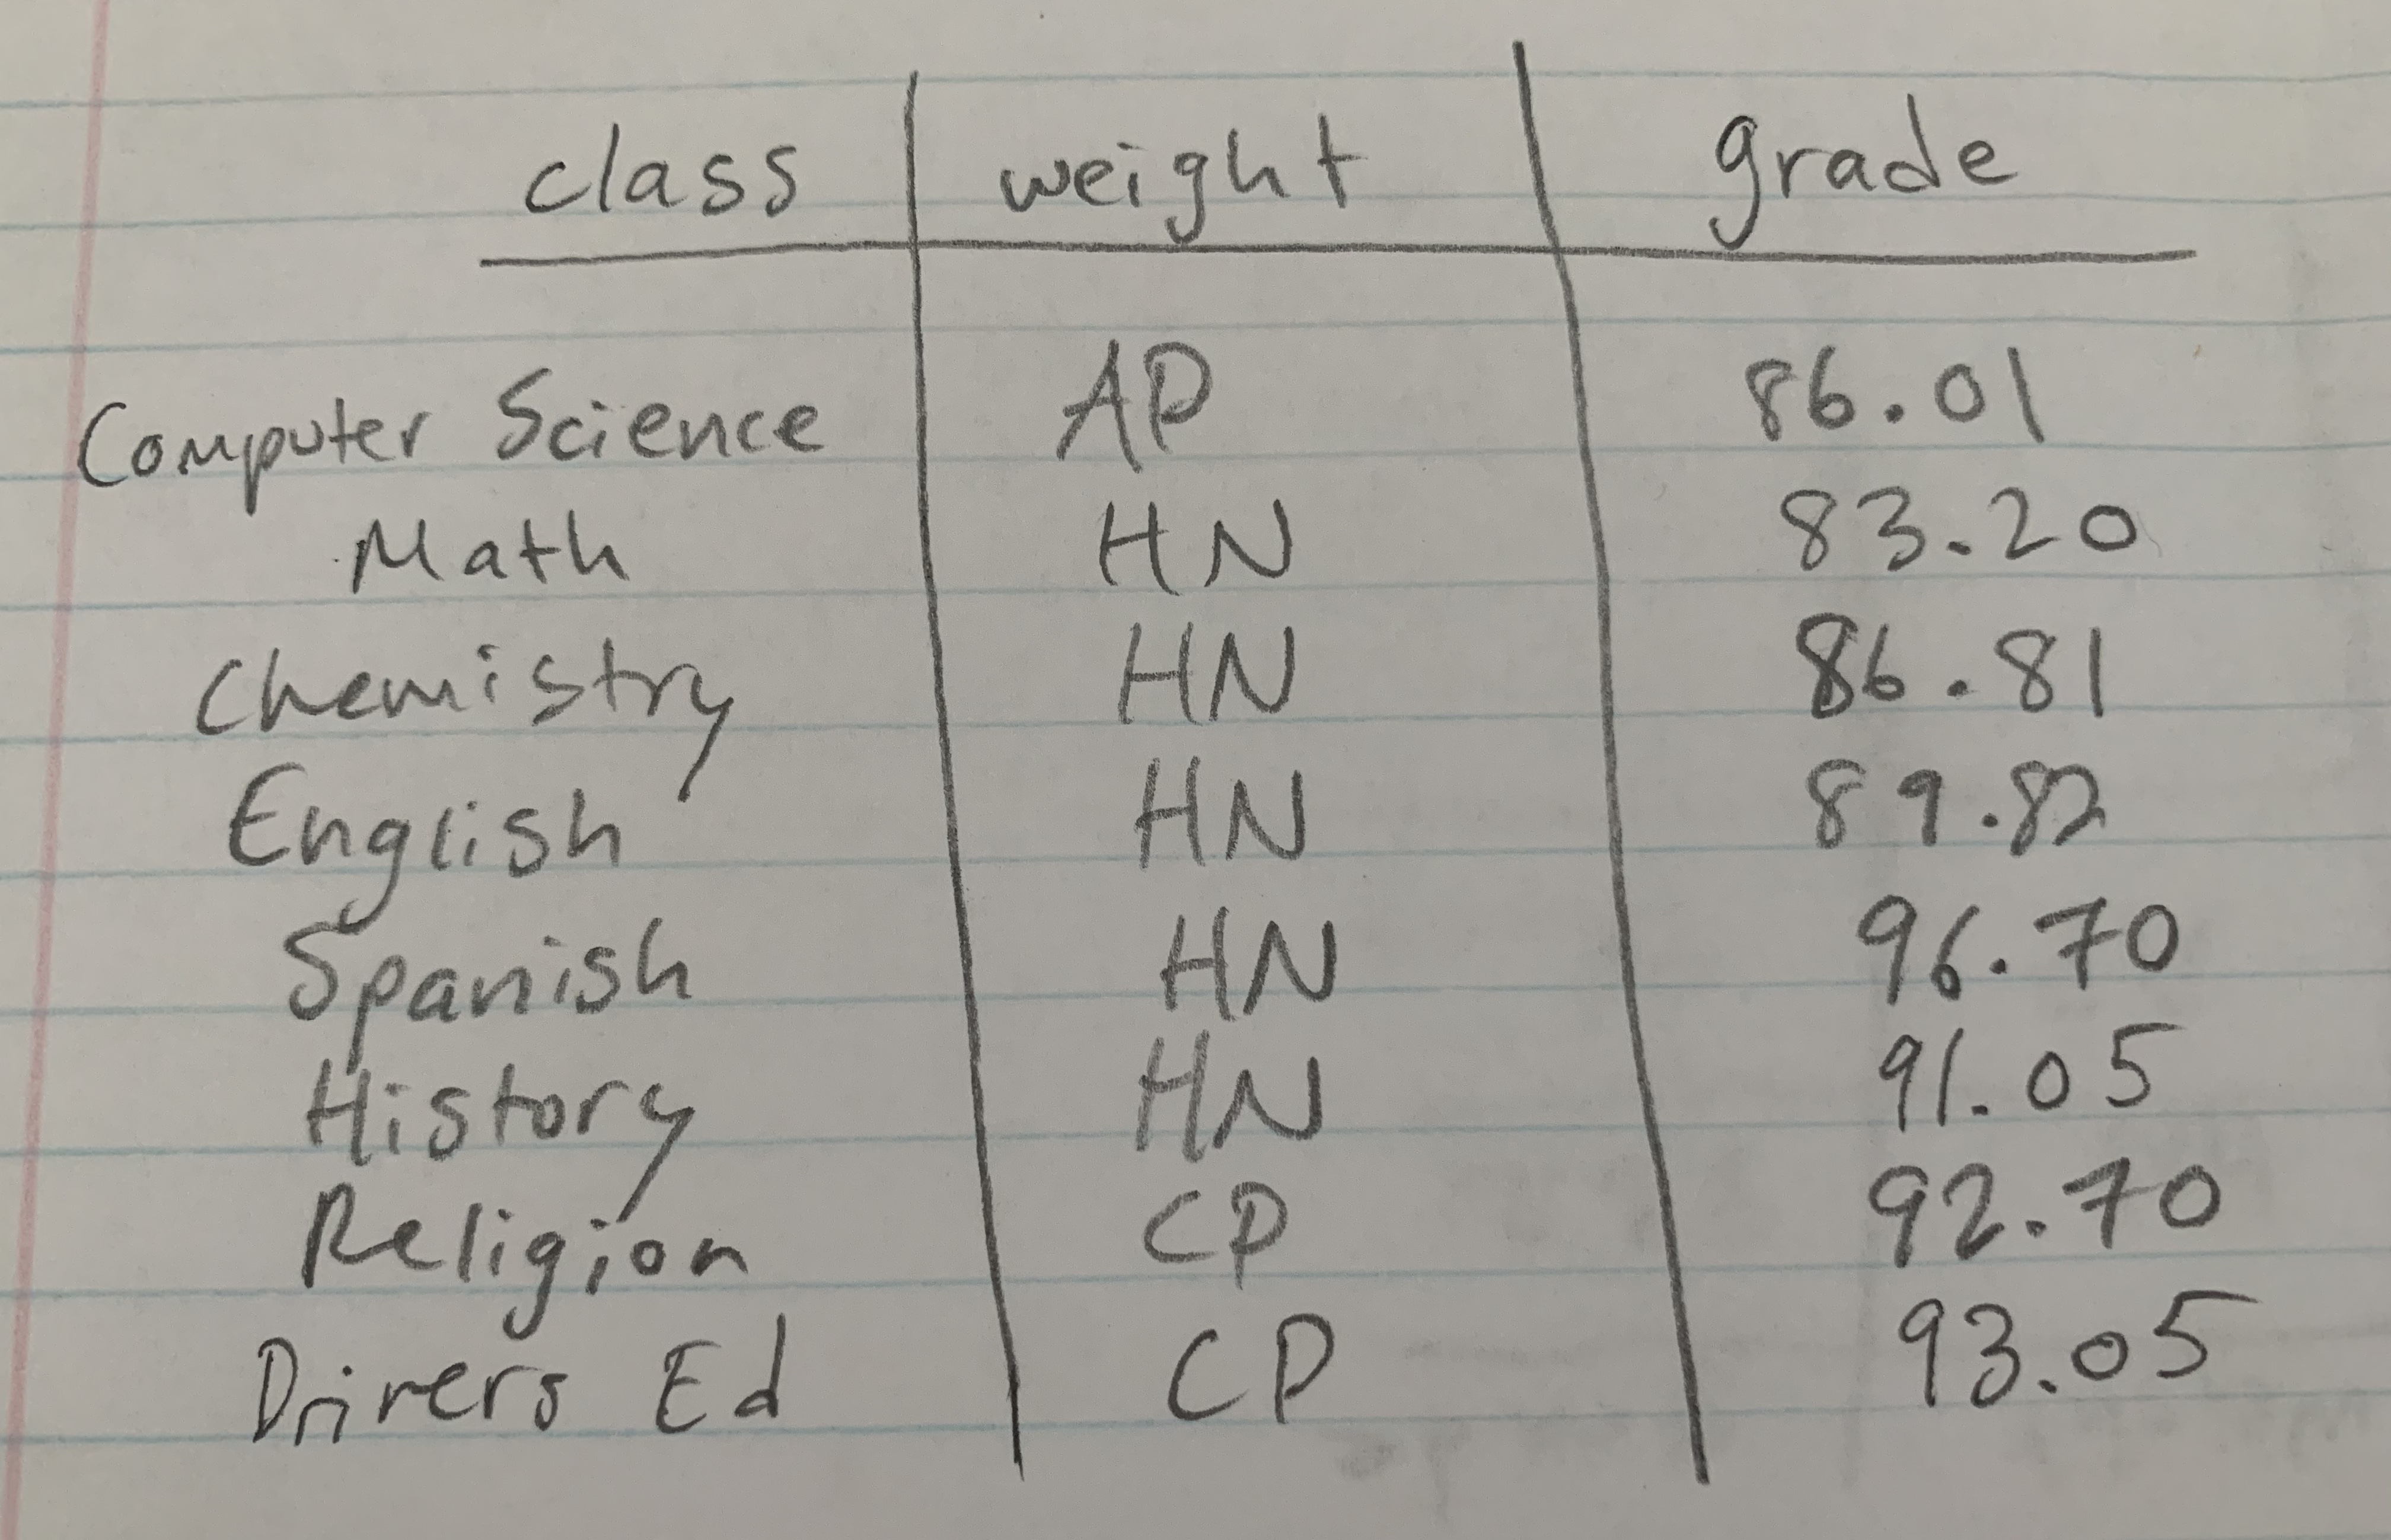 class weight grade
Computer Science AP 86.01
Math HN 83.20
Chemistry HN 86.81
English HN 89.82
Spanish HN 96.70
History HN 91.05
Religion CP 92.70
Drivers Ed CP 93.05